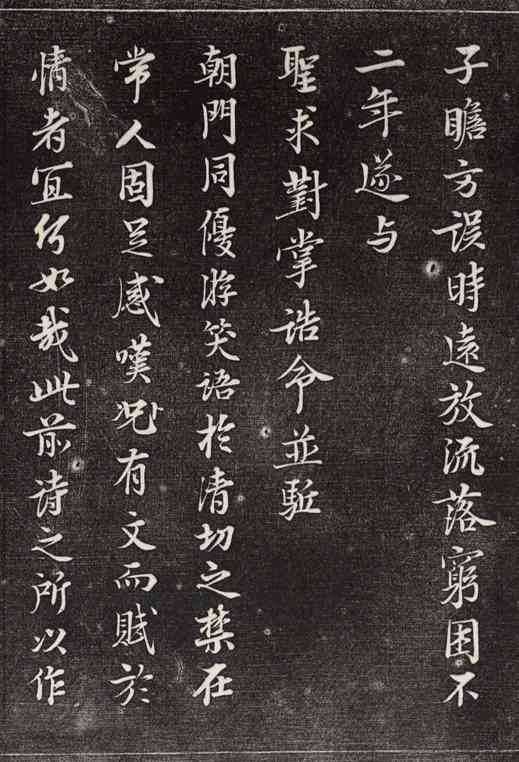 子瞻方誤時遠放流落窮困不
二年遂与
聖求對掌誥命並駈
朝門同優游笑語於清切之禁在
常人固足感嘆况有文而賦於
情者冝何如哉此前诗之所以作